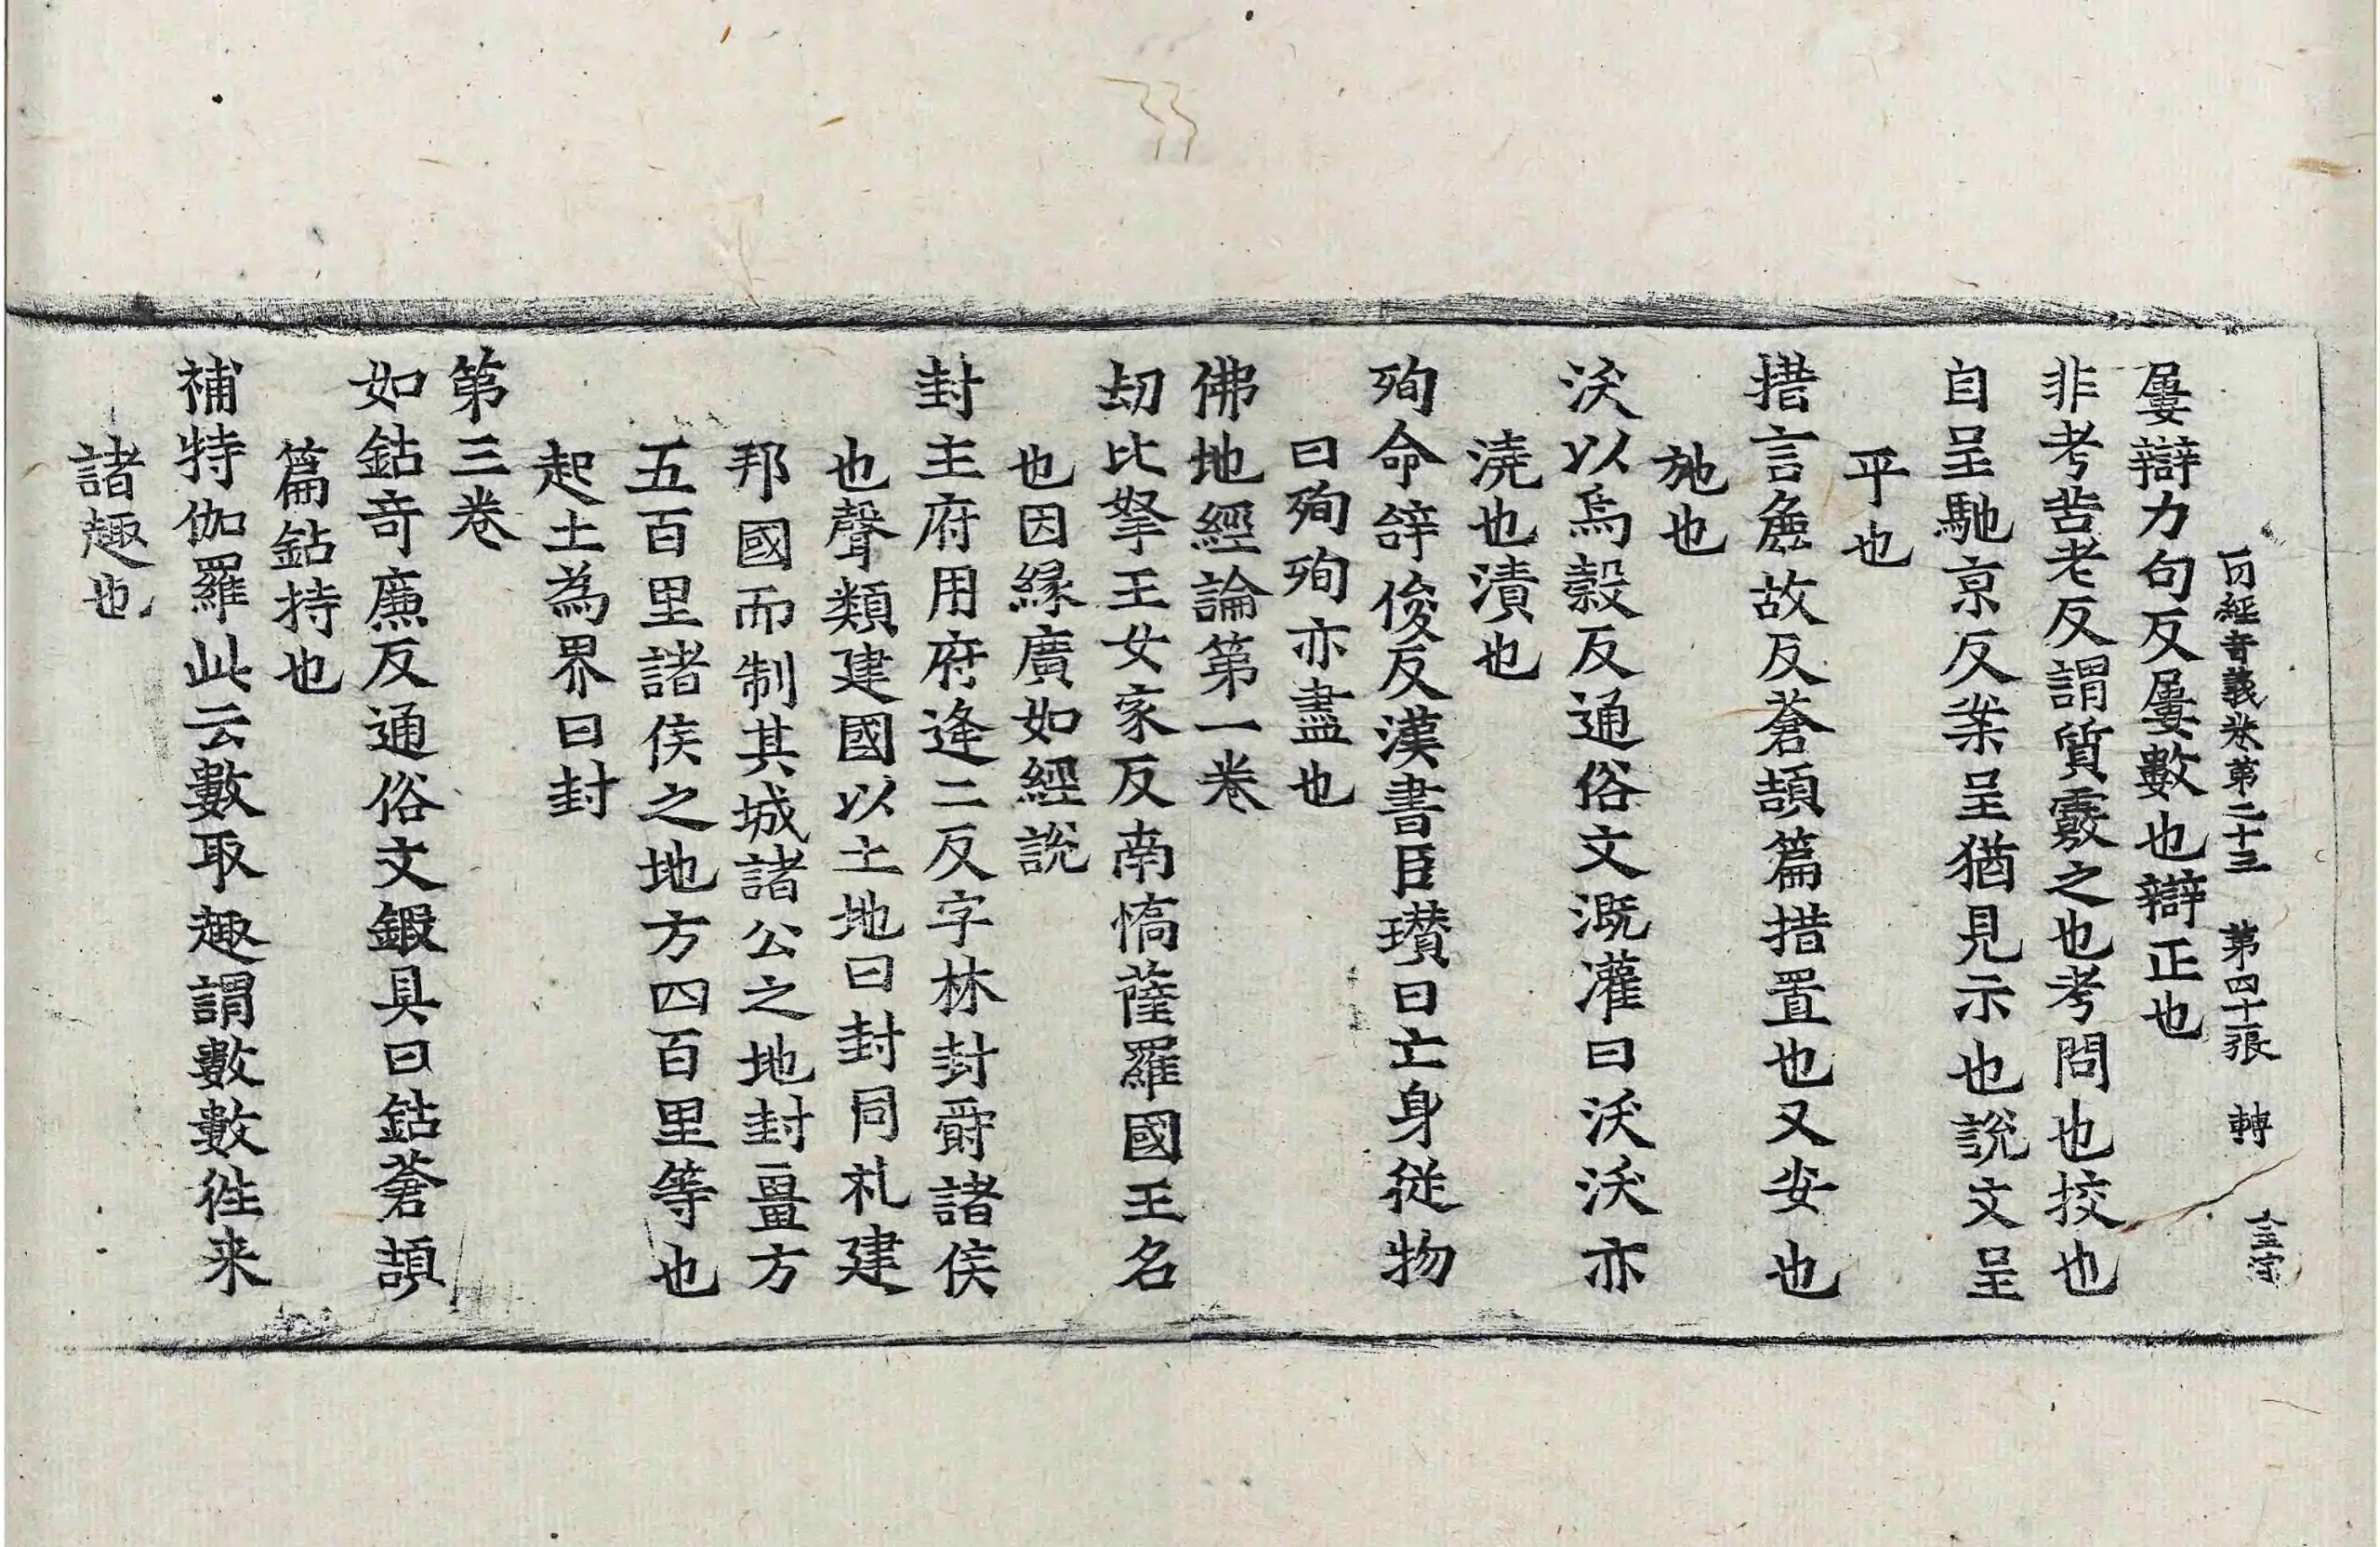 一切經音義卷第二十三　第四十張　轉
屢辯力句反屢數也辯正也
非考苦老反謂質覈之也考問也挍也
自呈馳京反業呈猶見示也說文呈
平也
措言麁故反蒼頡篇措置也又安也
施也
沃以烏穀反通俗文溉灌曰沃沃亦
澆也漬也
殉命辝俊反漢書臣瓚曰亡身從物
曰殉殉亦盡也
佛地經論第一卷
刧比拏王女家反南憍薩羅國王名
也因緣廣如經說
封主府用府逢二反字林封爵諸侯
也聲類建國以土地曰封同礼建
邦國而制其城諸公之地封畺方
五百里諸侯之地方四百里等也
起土為界曰封
第三卷
如鈷奇廉反通俗文鍜具曰鈷蒼頡
篇鈷持也
補特伽羅此云數取趣謂數數徃来
諸趣也